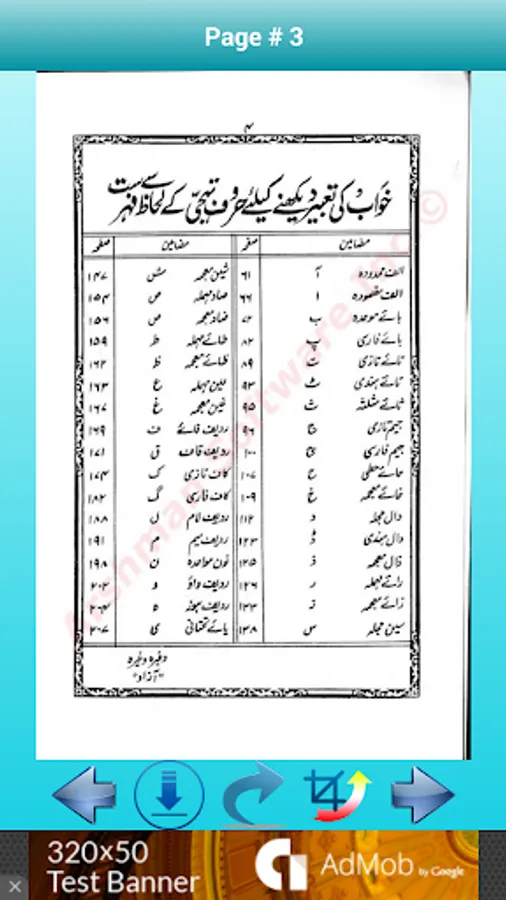 Page # 3
۴
خواب کی تعبیر دیکھنے کیلئے حروف تہجی کے لحاظ سے فہرست
مضامین صفحہ مضامین صفحہ
الف ممدودہ آ ۶۱ شین معجمہ ش ۱۴۷
الف مقصودہ ا ۶۶ صاد مہملہ ص ۱۵۴
بائے موحدہ ب ۷۲ ضاد معجمہ ض ۱۵۶
بائے فارسی پ ۸۲ طائے مہملہ ط ۱۵۹
تائے تازی ت ۸۹ ظائے معجمہ ظ ۱۶۲
تائے ہندی ٹ ۹۳ عین مہملہ ع ۱۶۳
ثائے مثلثہ ث ۹۵ غین معجمہ غ ۱۶۷
جیم تازی ج ۹۶ ردیف فائے ف ۱۶۹
جیم فارسی چ ۱۰۰ ردیف قاف ق ۱۷۱
حائے حطی ح ۱۰۷ کاف تازی ک ۱۷۴
خائے معجمہ خ ۱۰۹ کاف فارسی گ ۱۸۲
دال مہملہ د ۱۱۲ ردیف لام ل ۱۸۸
دال ہندی ڈ ۱۲۳ ردیف میم م ۱۹۱
ذال معجمہ ذ ۱۲۵ نون مواحدہ ن ۱۹۸
رائے مہملہ ر ۱۲۶ ردیف واؤ و ۲۰۲
زائے معجمہ ز ۱۳۳ ردیف ہوز ہ ۲۰۴
سین مہملہ س ۱۳۸ یائے تحتانی ی ۲۰۷
وغیرہ وغیرہ
"آزاد"
Arshman Software Inc ©
320×50
Test Banner
AdMob by Google